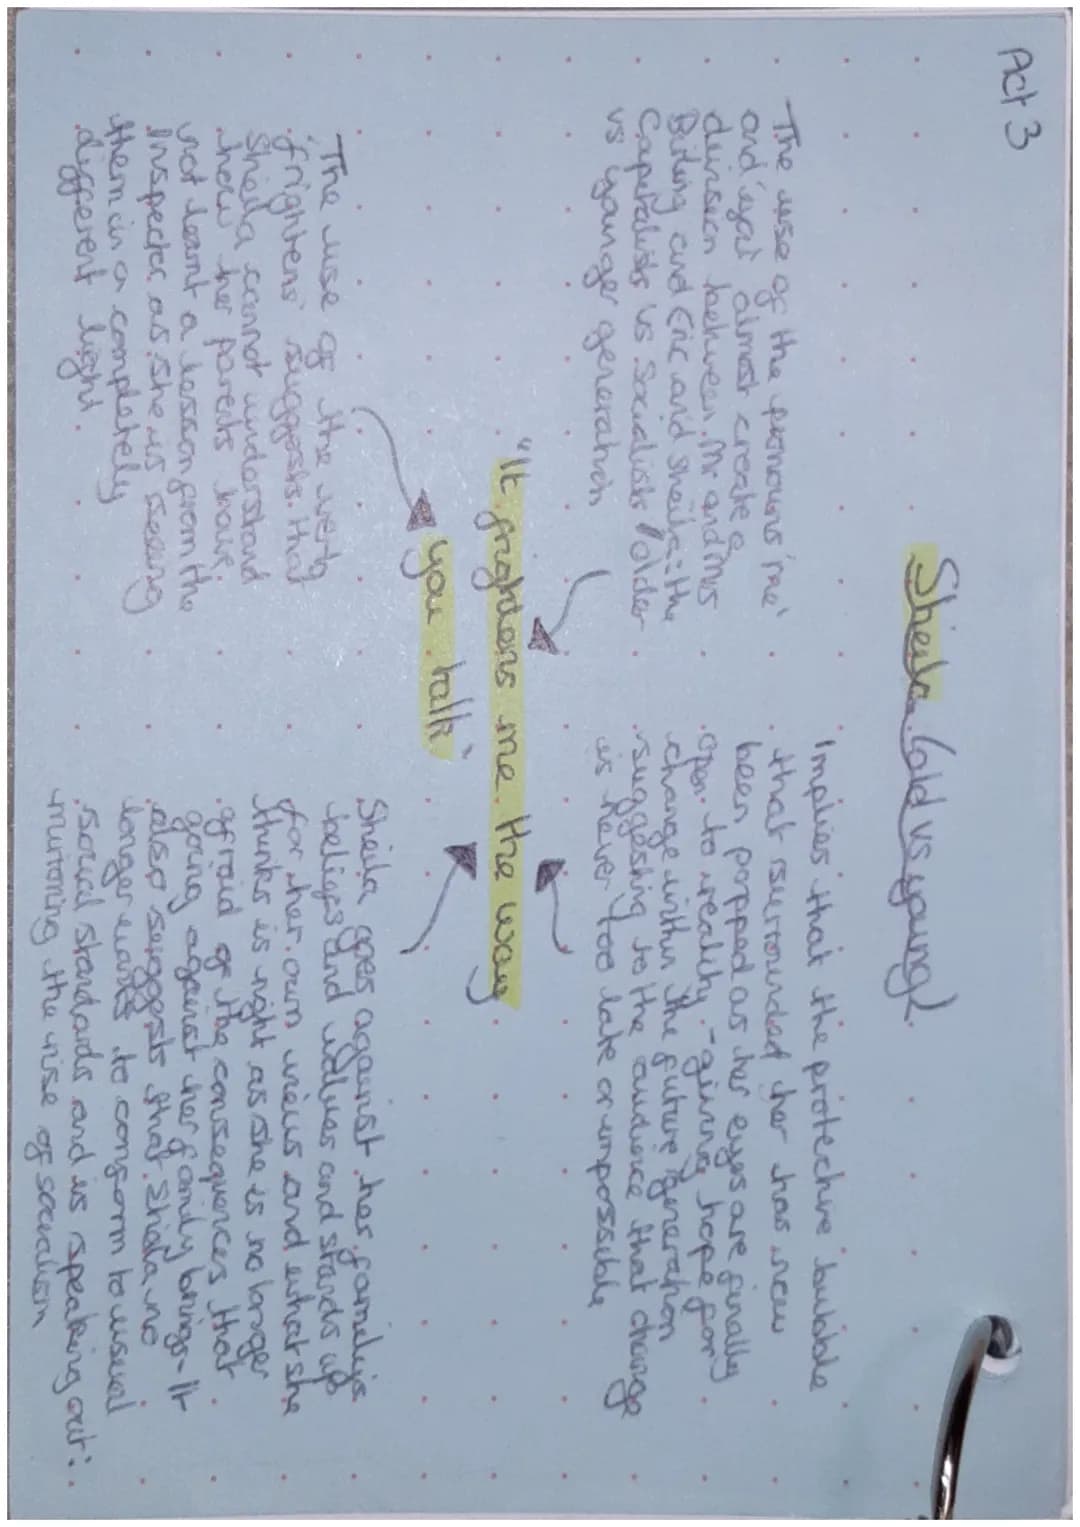 Act 3
Sheila (old vs young)
The use of the pronouns 'me'
and 'you' almost create a
division between Mr and Mrs
Birling and Eric and Sheila: the
Capitalists vs Socialists / older
vs younger generation
Implies that the protective bubble
that surrounded her has now
been popped as her eyes are finally
open to reality - giving hope for
change within the future generation
suggesting to the audience that change
is never too late or impossible
"It frightens me the way
you talk"
The use of the verb
'frightens' suggests that
Sheila cannot understand
how her parents have
not learnt a lesson from the
Inspector as she is seeing
them in a completely
different light.
Sheila goes against her family's
beliefs and values and stands up
for her own views and what she
thinks is right as she is no longer
afraid of the consequences that
going against her family brings - It
also suggests that Sheila no
longer wants to conform to usual
social standards and is speaking out:
mirroring the rise of socialism